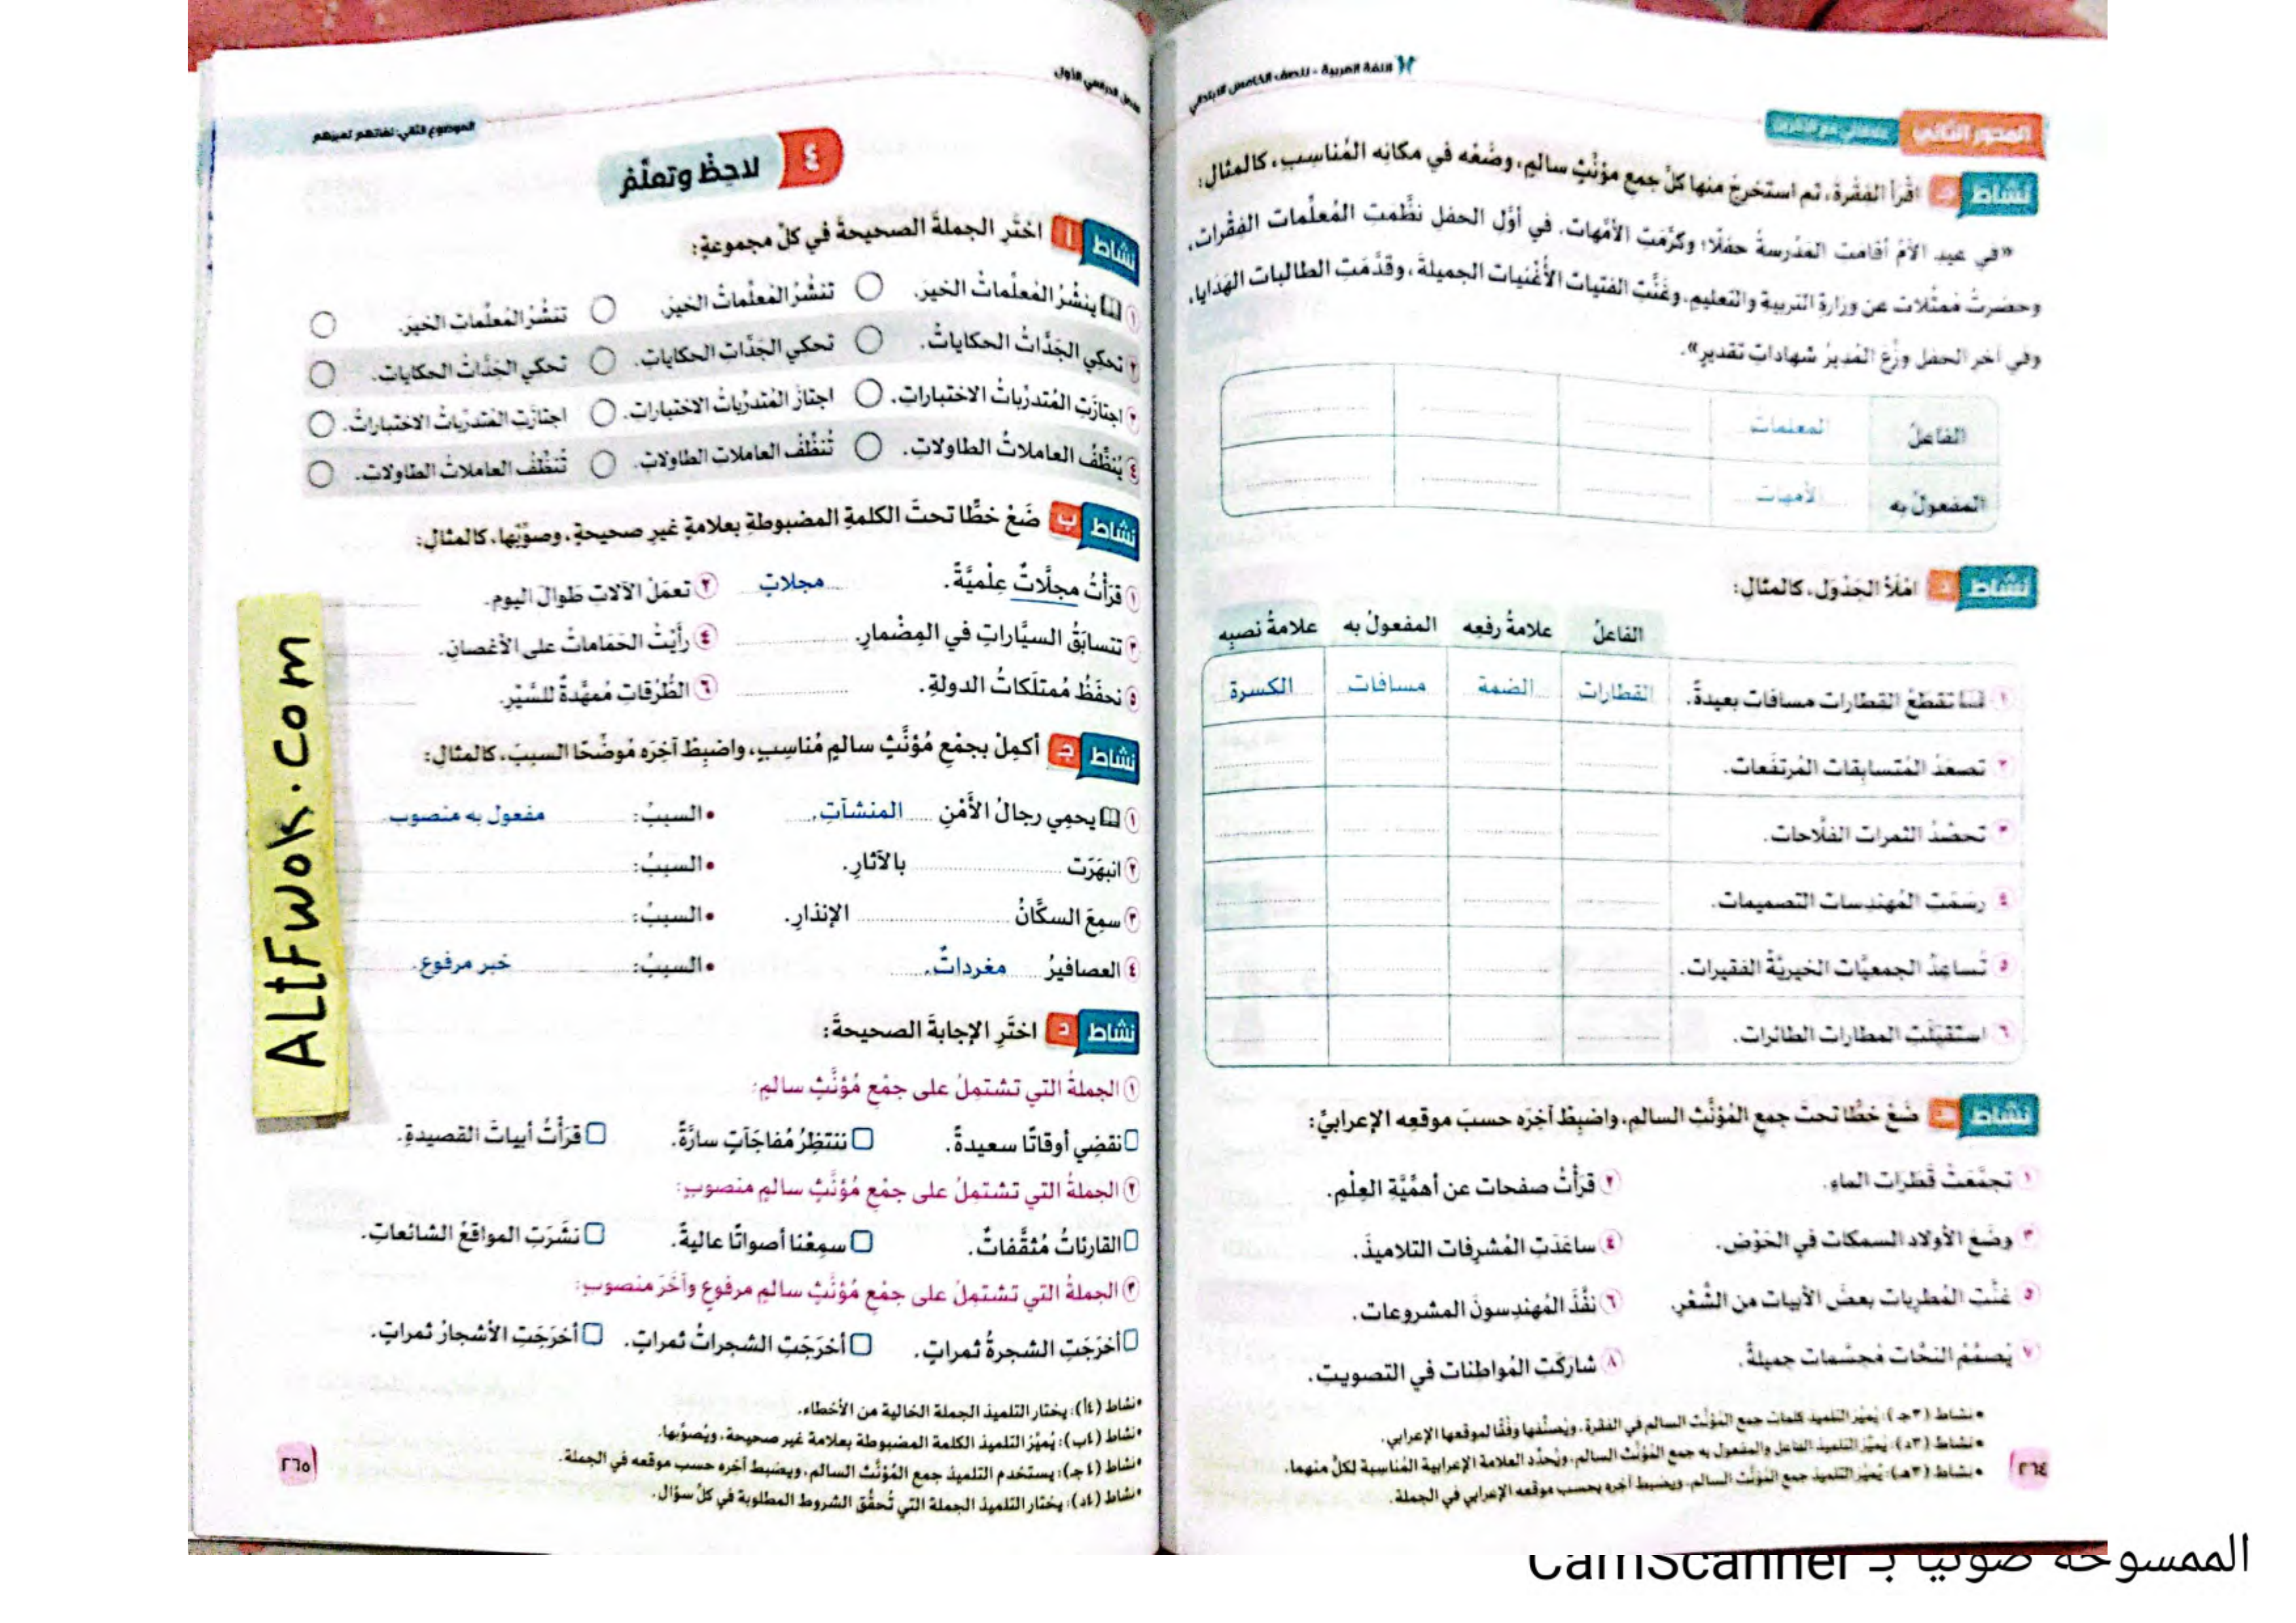 اللغة العربية - للصف الخامس الابتدائي
المحور الثاني
علاقاتي مع الآخرين
نشاط جـ اقْرَأ الفقْرةَ، ثم استخرِجْ منها كلَّ جمعِ مؤنَّثٍ سالمٍ، وضَعْه في مكانِه المُناسِبِ، كالمثال:
«في عيدِ الأمِّ أقامَت المَدْرسةُ حفلًا؛ وكرَّمَتِ الأمَّهات. في أوَّلِ الحفلِ نظَّمَتِ المُعلِّمات الفِقْرات،
وحضَرتْ مُمثِّلات عن وزارةِ التربيةِ والتعليمِ، وغنَّتِ الفَتيات الأُغْنيات الجميلةَ، وقدَّمَتِ الطالبات الهَدَايا،
وفي آخرِ الحفلِ وزَّعَ المُديرُ شهاداتِ تقديرٍ».
الفاعلُ المعلمات
المفعولُ به الأمهات
نشاط د امْلَأ الجَدْوَل، كالمثال:
الفاعلُ علامةُ رفعِه المفعولُ به علامةُ نصبِه
١ تقطَعُ القِطارات مسافات بعيدةً. القطارات الضمة مسافات الكسرة
٢ تصعَدُ المُتسابِقات المُرتفَعات.
٣ تحصُدُ الثمرات الفلَّاحات.
٤ رسَمَتِ المُهندِسات التصميمات.
٥ تُساعِدُ الجمعيَّات الخيريَّةُ الفقيرات.
٦ استقبَلَتِ المطارات الطائرات.
نشاط هـ ضَعْ خطًّا تحتَ جمعِ المُؤنَّثِ السالمِ، واضبِطْ آخِرَه حسبَ موقعِه الإعرابيِّ:
١ تجمَّعَتْ قَطَرات الماءِ.
٢ قرَأْتُ صفحات عن أهمِّيَّةِ العِلْمِ.
٣ وضَعَ الأولادُ السمكات في الحَوْضِ.
٤ ساعَدَتِ المُشرِفات التلاميذَ.
٥ غنَّتِ المُطرِبات بعضَ الأبيات من الشِّعْرِ.
٦ نفَّذَ المُهندِسونَ المشروعات.
٧ يُصمِّمُ النحَّات مُجسَّمات جميلةً.
٨ شاركَتِ المُواطِنات في التصويتِ.
• نشاط (٣جـ): يُميِّز التلميذ كلمات جمع المُؤنَّث السالم في الفقرة، ويُصنِّفها وفْقًا لموقعها الإعرابي.
• نشاط (٣د): يُميِّز التلميذ الفاعل والمفعول به جمع المُؤنَّث السالم، ويُحدِّد العلامة الإعرابية المُناسبة لكلٍّ منهما.
• نشاط (٣هـ): يُميِّز التلميذ جمع المُؤنَّث السالم، ويضبط آخره بحسب موقعه الإعرابي في الجملة.
٢٦٤
الفصل الدراسي الأول
الموضوع الثاني: ثقافتهم تميزهم
٤ لاحِظْ وتعلَّمْ
نشاط أ اختَرِ الجملةَ الصحيحةَ في كلِّ مجموعةٍ:
١ ينشُرُ المُعلِّماتُ الخيرَ. تنشُرُ المُعلِّماتُ الخيرَ. تنشُرُ المُعلِّماتِ الخيرَ.
٢ تحكِي الجَدَّاتُ الحكاياتُ. تحكي الجَدَّاتِ الحكاياتِ. تحكي الجَدَّاتُ الحكاياتِ.
٣ اجتازَتِ المُتدرِّباتُ الاختباراتِ. اجتازَ المُتدرِّباتُ الاختباراتِ. اجتازَتِ المُتدرِّباتُ الاختباراتُ.
٤ يُنظِّفُ العاملاتُ الطاولاتِ. تُنظِّفُ العاملاتِ الطاولاتِ. تُنظِّفُ العاملاتُ الطاولاتِ.
نشاط ب ضَعْ خطًّا تحتَ الكلمةِ المضبوطةِ بعلامةٍ غيرِ صحيحةٍ، وصوِّبْها، كالمثالِ:
١ قرَأْتُ مجلَّاتٌ عِلْميَّةً. مجلاتٍ
٢ تعمَلُ الآلاتِ طَوالَ اليومِ.
٣ تتسابَقُ السيَّاراتِ في المِضْمارِ.
٤ رأَيْتُ الحَمَاماتُ على الأغصانِ.
٥ نحفَظُ مُمتلَكاتُ الدولةِ.
٦ الطُّرُقاتِ مُمهَّدةٌ للسَّيْرِ.
نشاط جـ أكمِلْ بجمْعِ مُؤنَّثٍ سالمٍ مُناسِبٍ، واضبِطْ آخِرَه مُوضِّحًا السببَ، كالمثالِ:
١ يحمِي رجالُ الأَمْنِ المنشآتِ. • السببُ: مفعول به منصوب
٢ انبهَرَت بالآثارِ. • السببُ:
٣ سمِعَ السكَّانُ الإنذارِ. • السببُ:
٤ العصافيرُ مغرداتٌ. • السببُ: خبر مرفوع.
نشاط د اختَرِ الإجابةَ الصحيحةَ:
١ الجملةُ التي تشتمِلُ على جمْعِ مُؤنَّثٍ سالمٍ:
نقضِي أوقاتًا سعيدةً. ننتظِرُ مُفاجَآتٍ سارَّةً. قرَأْتُ أبياتَ القصيدةِ.
٢ الجملةُ التي تشتمِلُ على جمْعِ مُؤنَّثٍ سالمٍ منصوبٍ:
القارئاتُ مُثقَّفاتٌ. سمِعْنا أصواتًا عاليةً. نشَرَتِ المواقعُ الشائعاتِ.
٣ الجملةُ التي تشتمِلُ على جمْعِ مُؤنَّثٍ سالمٍ مرفوعٍ وآخَرَ منصوبٍ:
أخرَجَتِ الشجرةُ ثمراتٍ. أخرَجَتِ الشجراتُ ثمراتٍ. أخرَجَتِ الأشجارُ ثمراتٍ.
•نشاط (٤أ): يختار التلميذ الجملة الخالية من الأخطاء.
•نشاط (٤ب): يُميِّز التلميذ الكلمة المضبوطة بعلامة غير صحيحة، ويُصوِّبها.
•نشاط (٤جـ): يستخدم التلميذ جمع المُؤنَّث السالم، ويضبط آخره حسب موقعه في الجملة.
•نشاط (٤د): يختار التلميذ الجملة التي تُحقِّق الشروط المطلوبة في كلِّ سؤال.
٢٦٥
ALtFwok.com
الممسوحة ضوئيا بـ CamScanner